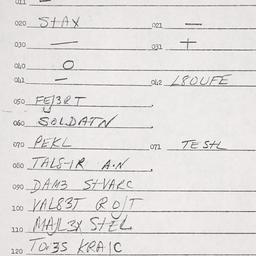 011 —
020 STAX 021 —
030 — 031 +
040 O
041 — 042 L8OUFE
050 FEJ3RT
060 SOLDATN
070 PEKL 071 TESTL
080 TALS-IR A.N
090 DAM3 STVARC
100 VAL83T ROJT
110 STEL
120 KRAIC